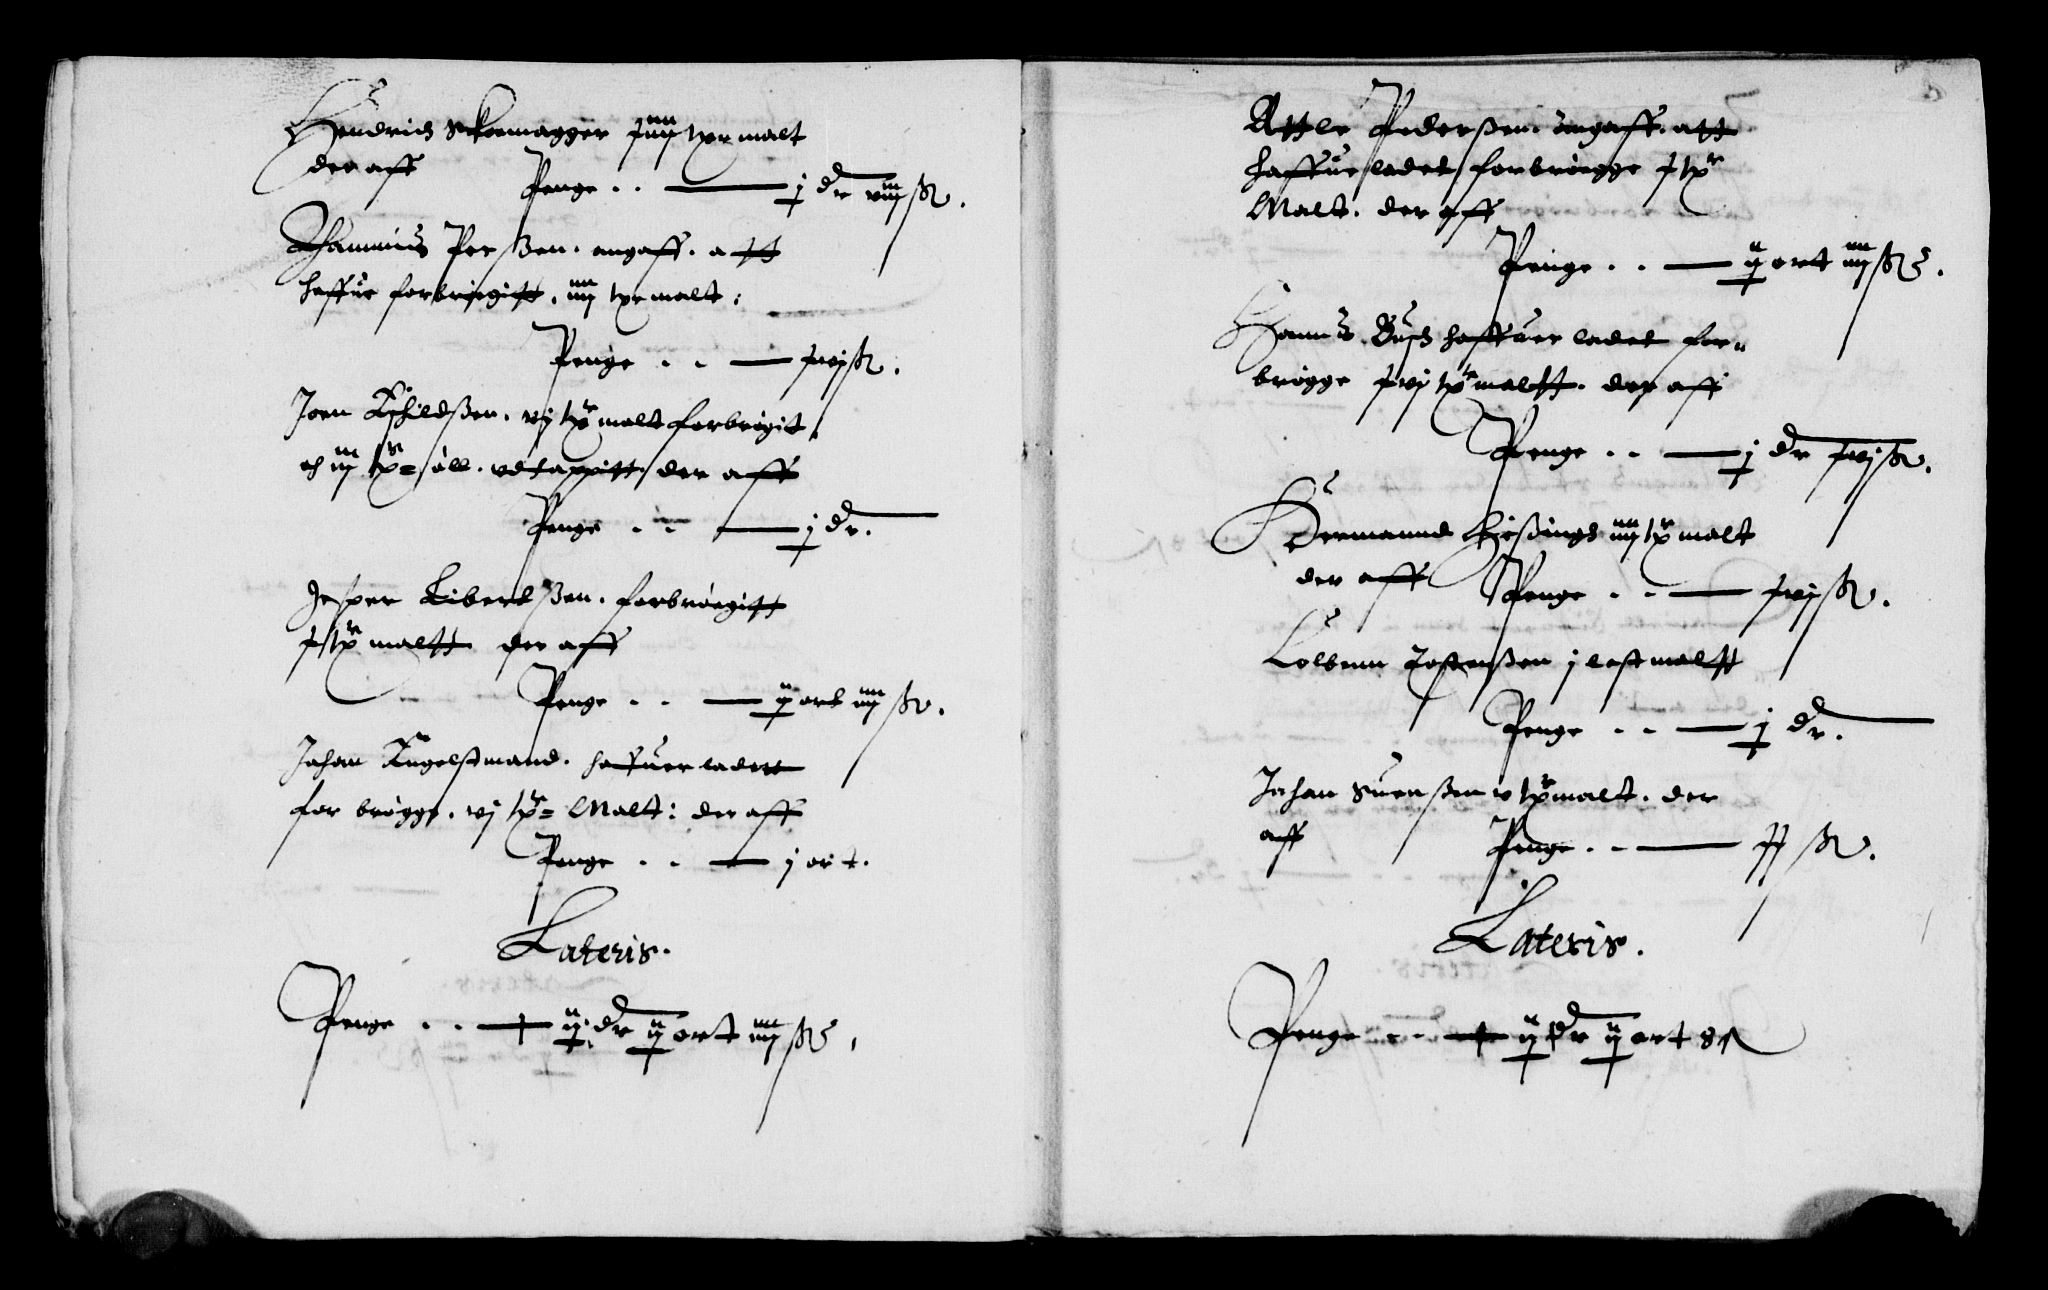 Hendrich Skoemagger xiiij tr malt
der aff
Penge . . — j dr viij ß.
Thammis Perßen. angaff. att
haffue forbrøgitt. iiij tr malt:
Penge . . — xvj ß.
Joen Kihildßen. vj tr malt forbrøgit.
och iij tr = øll. vdtappitt. der aff
Penge . . — j dr.
Jesper Libertßen. forbrøegitt
x tr maltt der aff
Penge . . — ij ort iiij ß.
Johan Engelstmand. haffuer ladett
for brøgge. vj tr = Malt: der aff
Penge . . — j ort.
Lateris.
Penge . . — ij dr ij ort iiij ß.
Attle Pederßen. angaff. att
haffue ladet forbrøegge x tr
Malt. der aff
Penge . . — ij ort iiij ß.
Hanns Busch haffuer ladet for„
brøgge xvj tr maltt. der aff
Penge . . — j dr xvj ß.
Hermannd iiij tr malt
der aff Penge . . — xvj ß.
Colbenn j lest maltt
Penge . . — j dr.
Johan Suenßen v tr malt. der
aff Penge . . — xx ß.
Lateris.
Penge . . — ij dr ij ort 8 ß